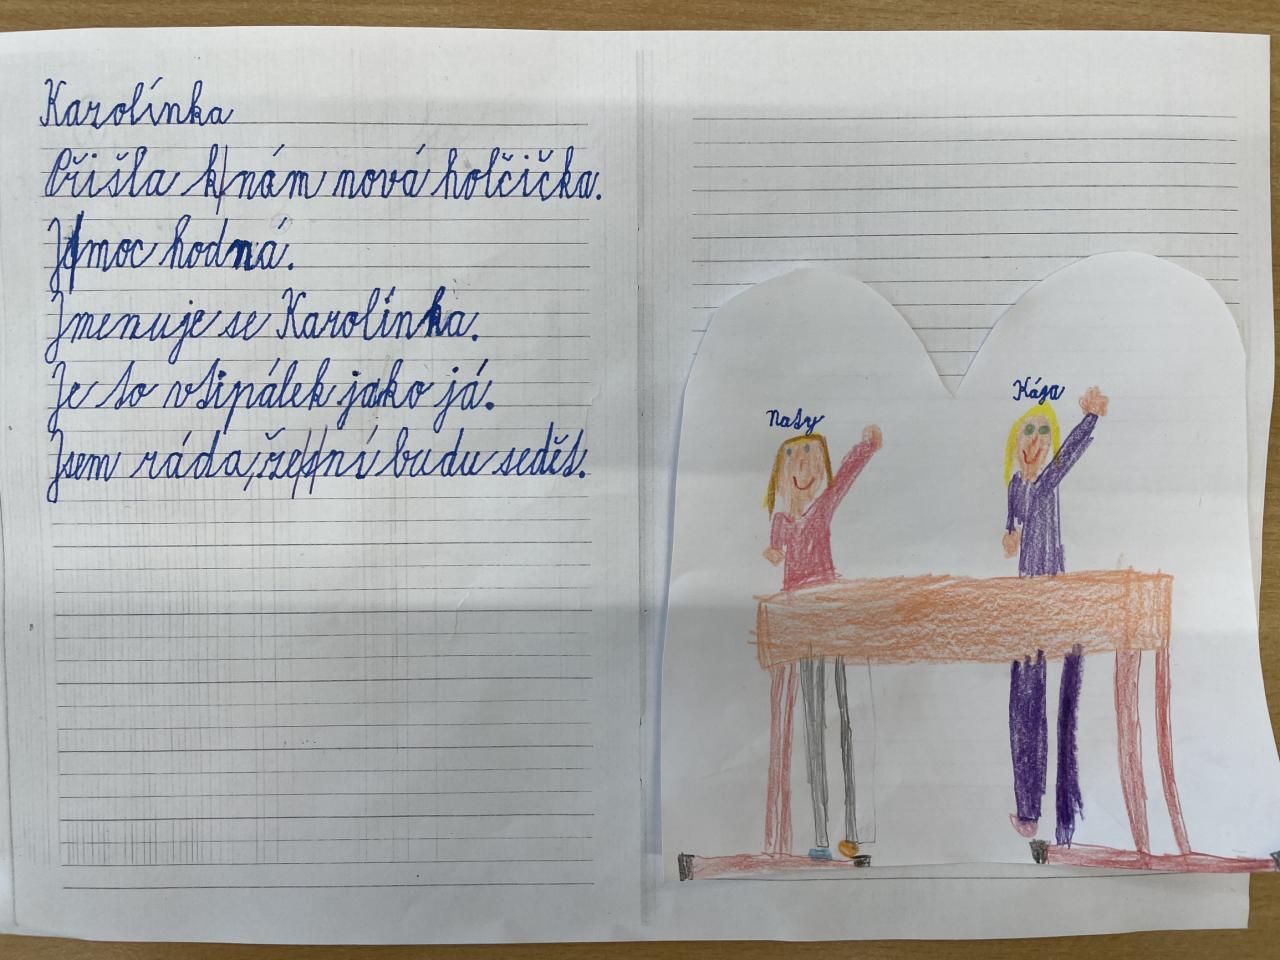 Karolínka
Přišla k nám nová holčička.
Je moc hodná.
Jmenuje se Karolínka.
Je to vtipálek jako já.
Jsem ráda, že s ní budu sedět.
Naty
Kája